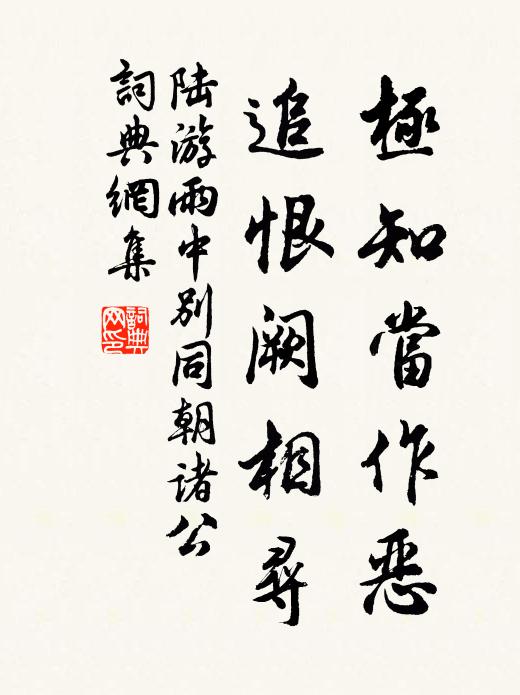 極知當作惡
追恨闕相尋
陆游雨中别同朝诸公
詞典網集
詞典网印